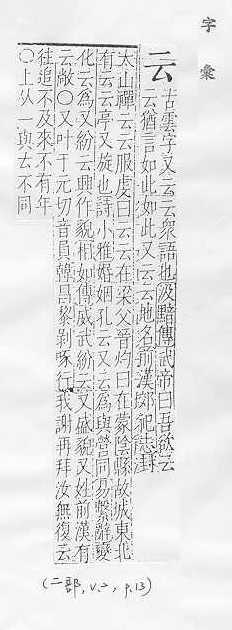 字彙
云 古雲字又云云衆語也汲黯傳武帝曰吾欲云
云猶言如此如此又云云地名前漢郊祀志封
大山禪云云服虔曰云云在梁父晉灼曰在蒙陰縣故城東北
有云云亭又旋也詩小雅婚姻孔云又云爲與營同易繫辭變
化云爲又紛云興作貌相如傳威武紛云又盛貌又姓前漢有
云敞○又叶于元切音員韓昌黎剥啄行我謝再拜汝無復云
往追不及來不有年
○上从一與去不同
(二部, v.2, p.13)